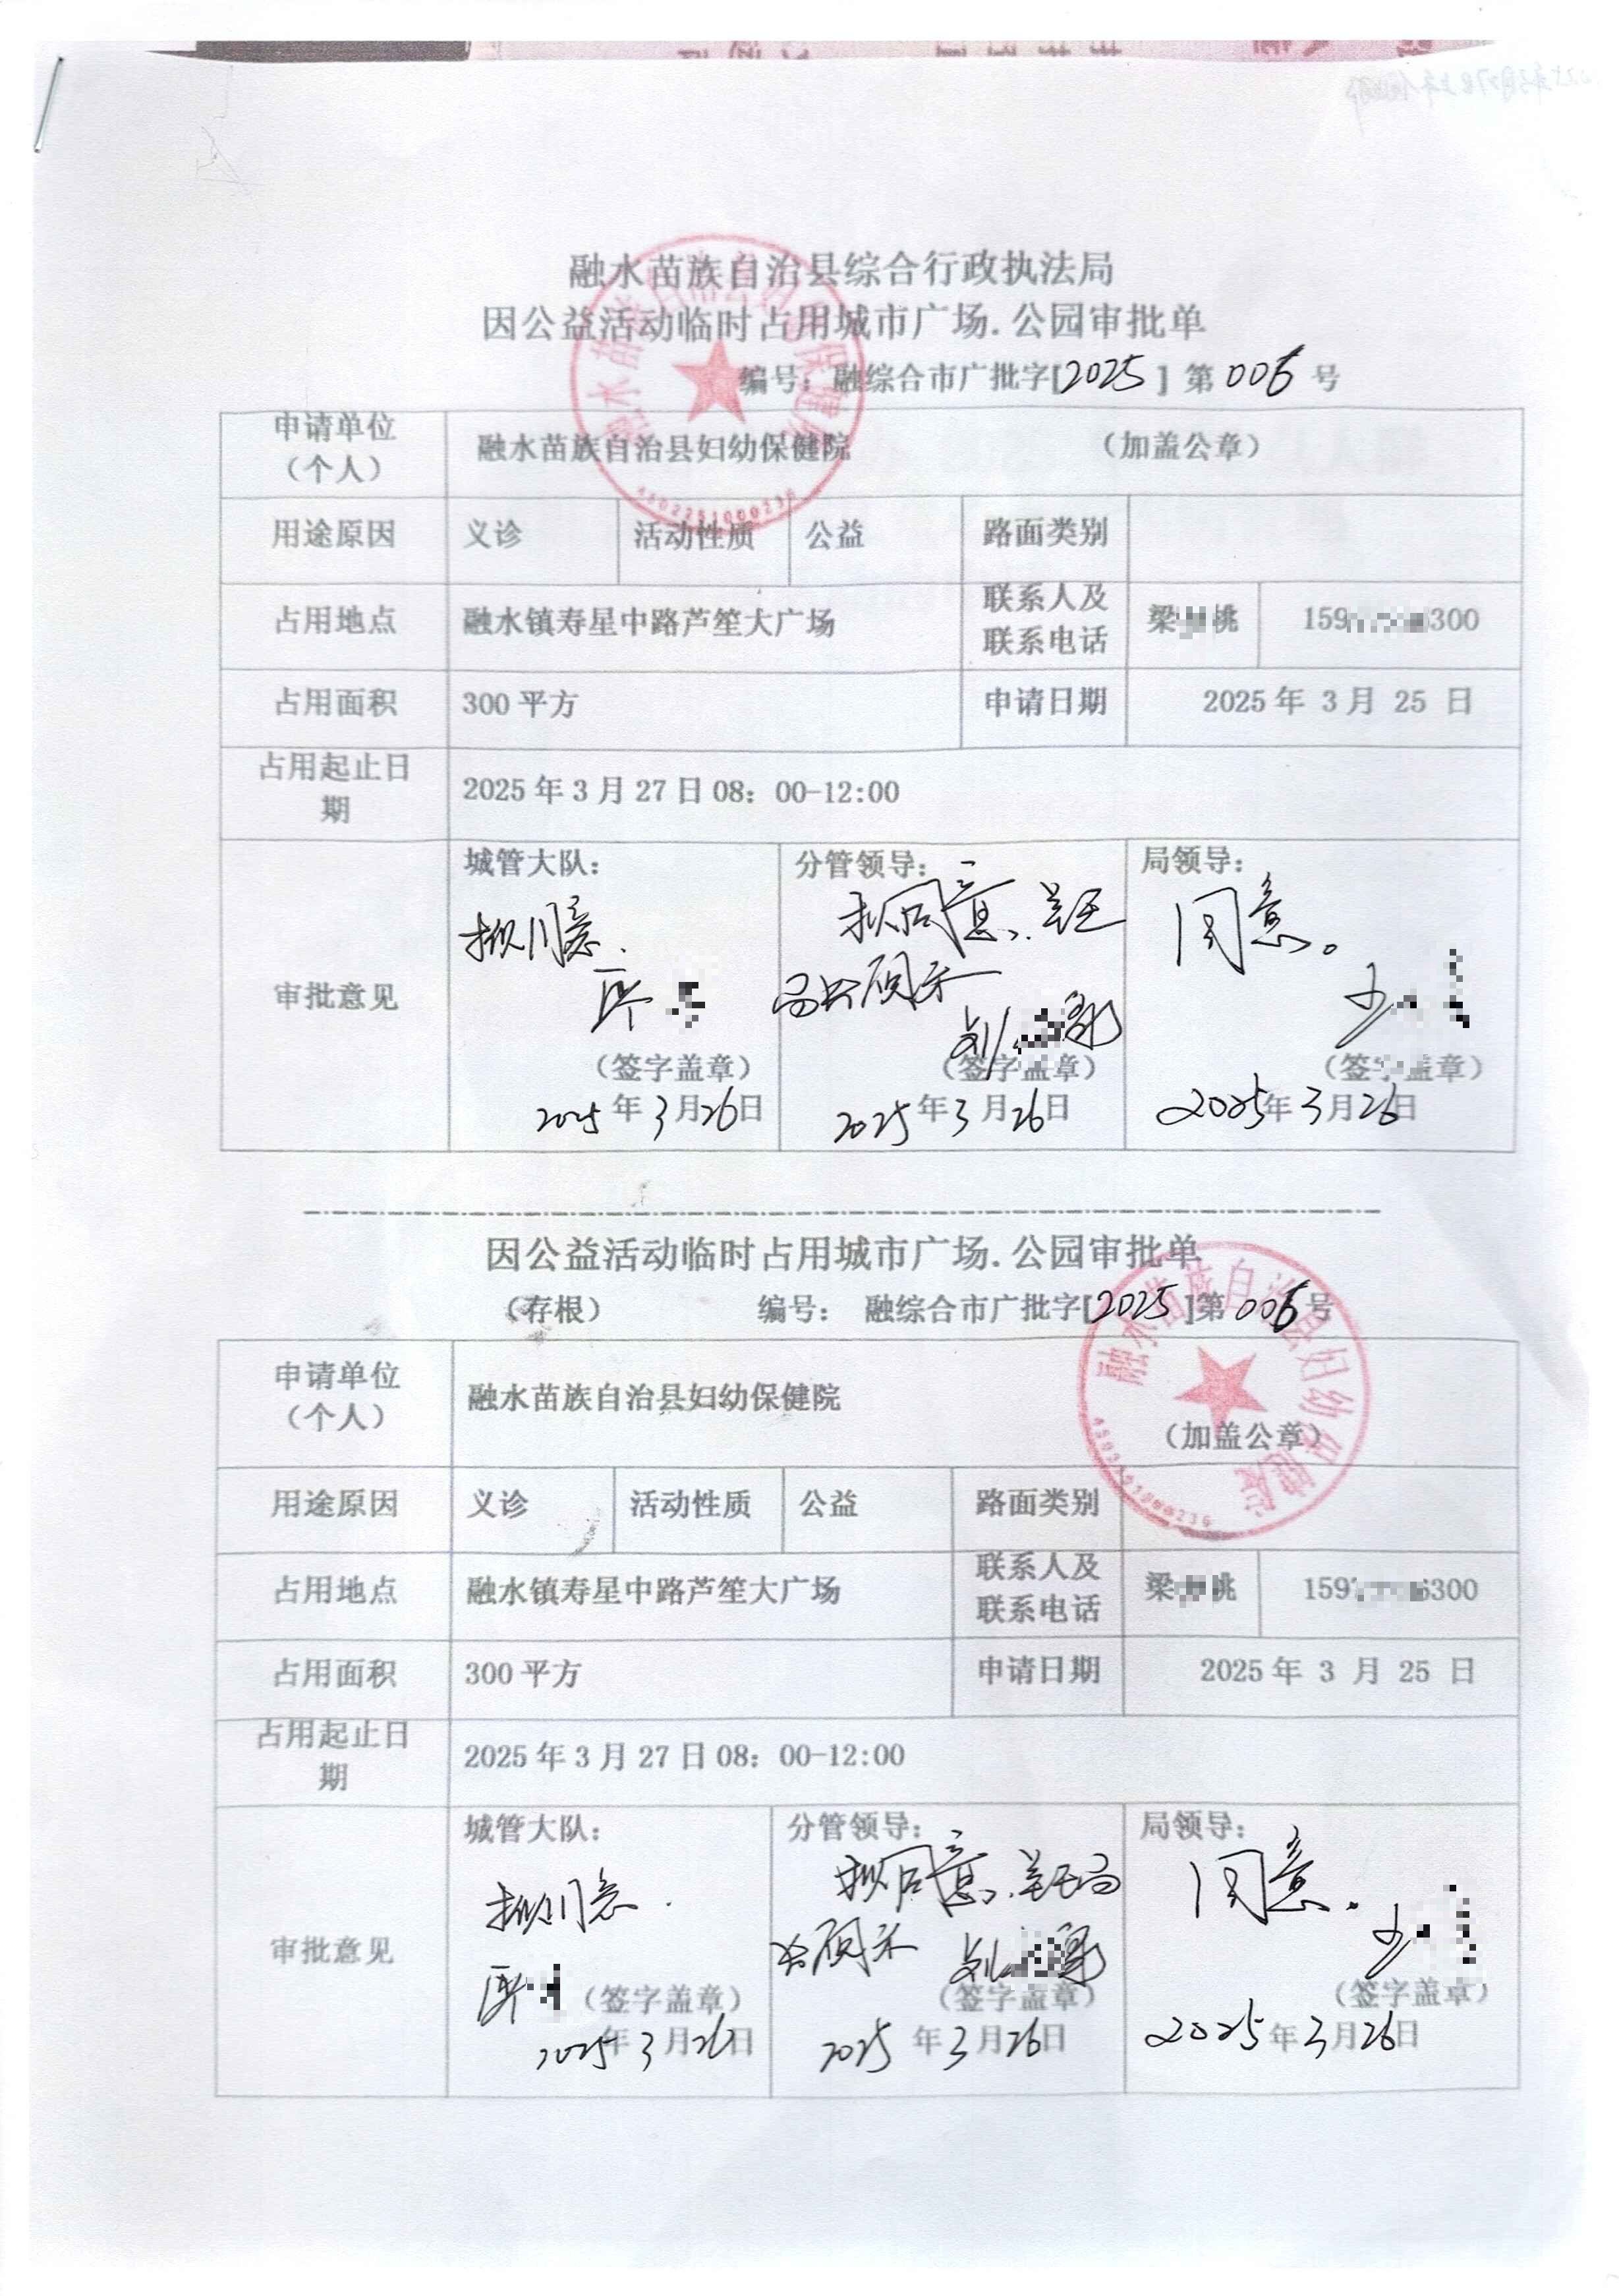 融水苗族自治县综合行政执法局
因公益活动临时占用城市广场.公园审批单
编号：融综合市广批字[2025] 第 006 号
申请单位（个人） 融水苗族自治县妇幼保健院 （加盖公章）
用途原因 义诊 活动性质 公益 路面类别
占用地点 融水镇寿星中路芦笙大广场 联系人及联系电话 梁 桃 159 300
占用面积 300 平方 申请日期 2025 年 3 月 25 日
占用起止日期 2025 年 3 月 27 日 08：00-12:00
审批意见
城管大队：
拟同意.
（签字盖章）
2025 年 3 月 26 日
分管领导：
拟同意, 呈王局长阅示
刘
（签字盖章）
2025 年 3 月 26 日
局领导：
同意。
（签字盖章）
2025 年 3 月 26 日
因公益活动临时占用城市广场.公园审批单
（存根） 编号： 融综合市广批字[2025]第 006 号
申请单位（个人） 融水苗族自治县妇幼保健院 （加盖公章）
用途原因 义诊 活动性质 公益 路面类别
占用地点 融水镇寿星中路芦笙大广场 联系人及联系电话 梁 桃 159 6300
占用面积 300 平方 申请日期 2025 年 3 月 25 日
占用起止日期 2025 年 3 月 27 日 08：00-12:00
审批意见
城管大队：
拟同意.
（签字盖章）
2025 年 3 月 26 日
分管领导：
拟同意, 呈王局长阅示
刘
（签字盖章）
2025 年 3 月 26 日
局领导：
同意.
（签字盖章）
2025 年 3 月 26 日
融水苗族自治县妇幼保健院